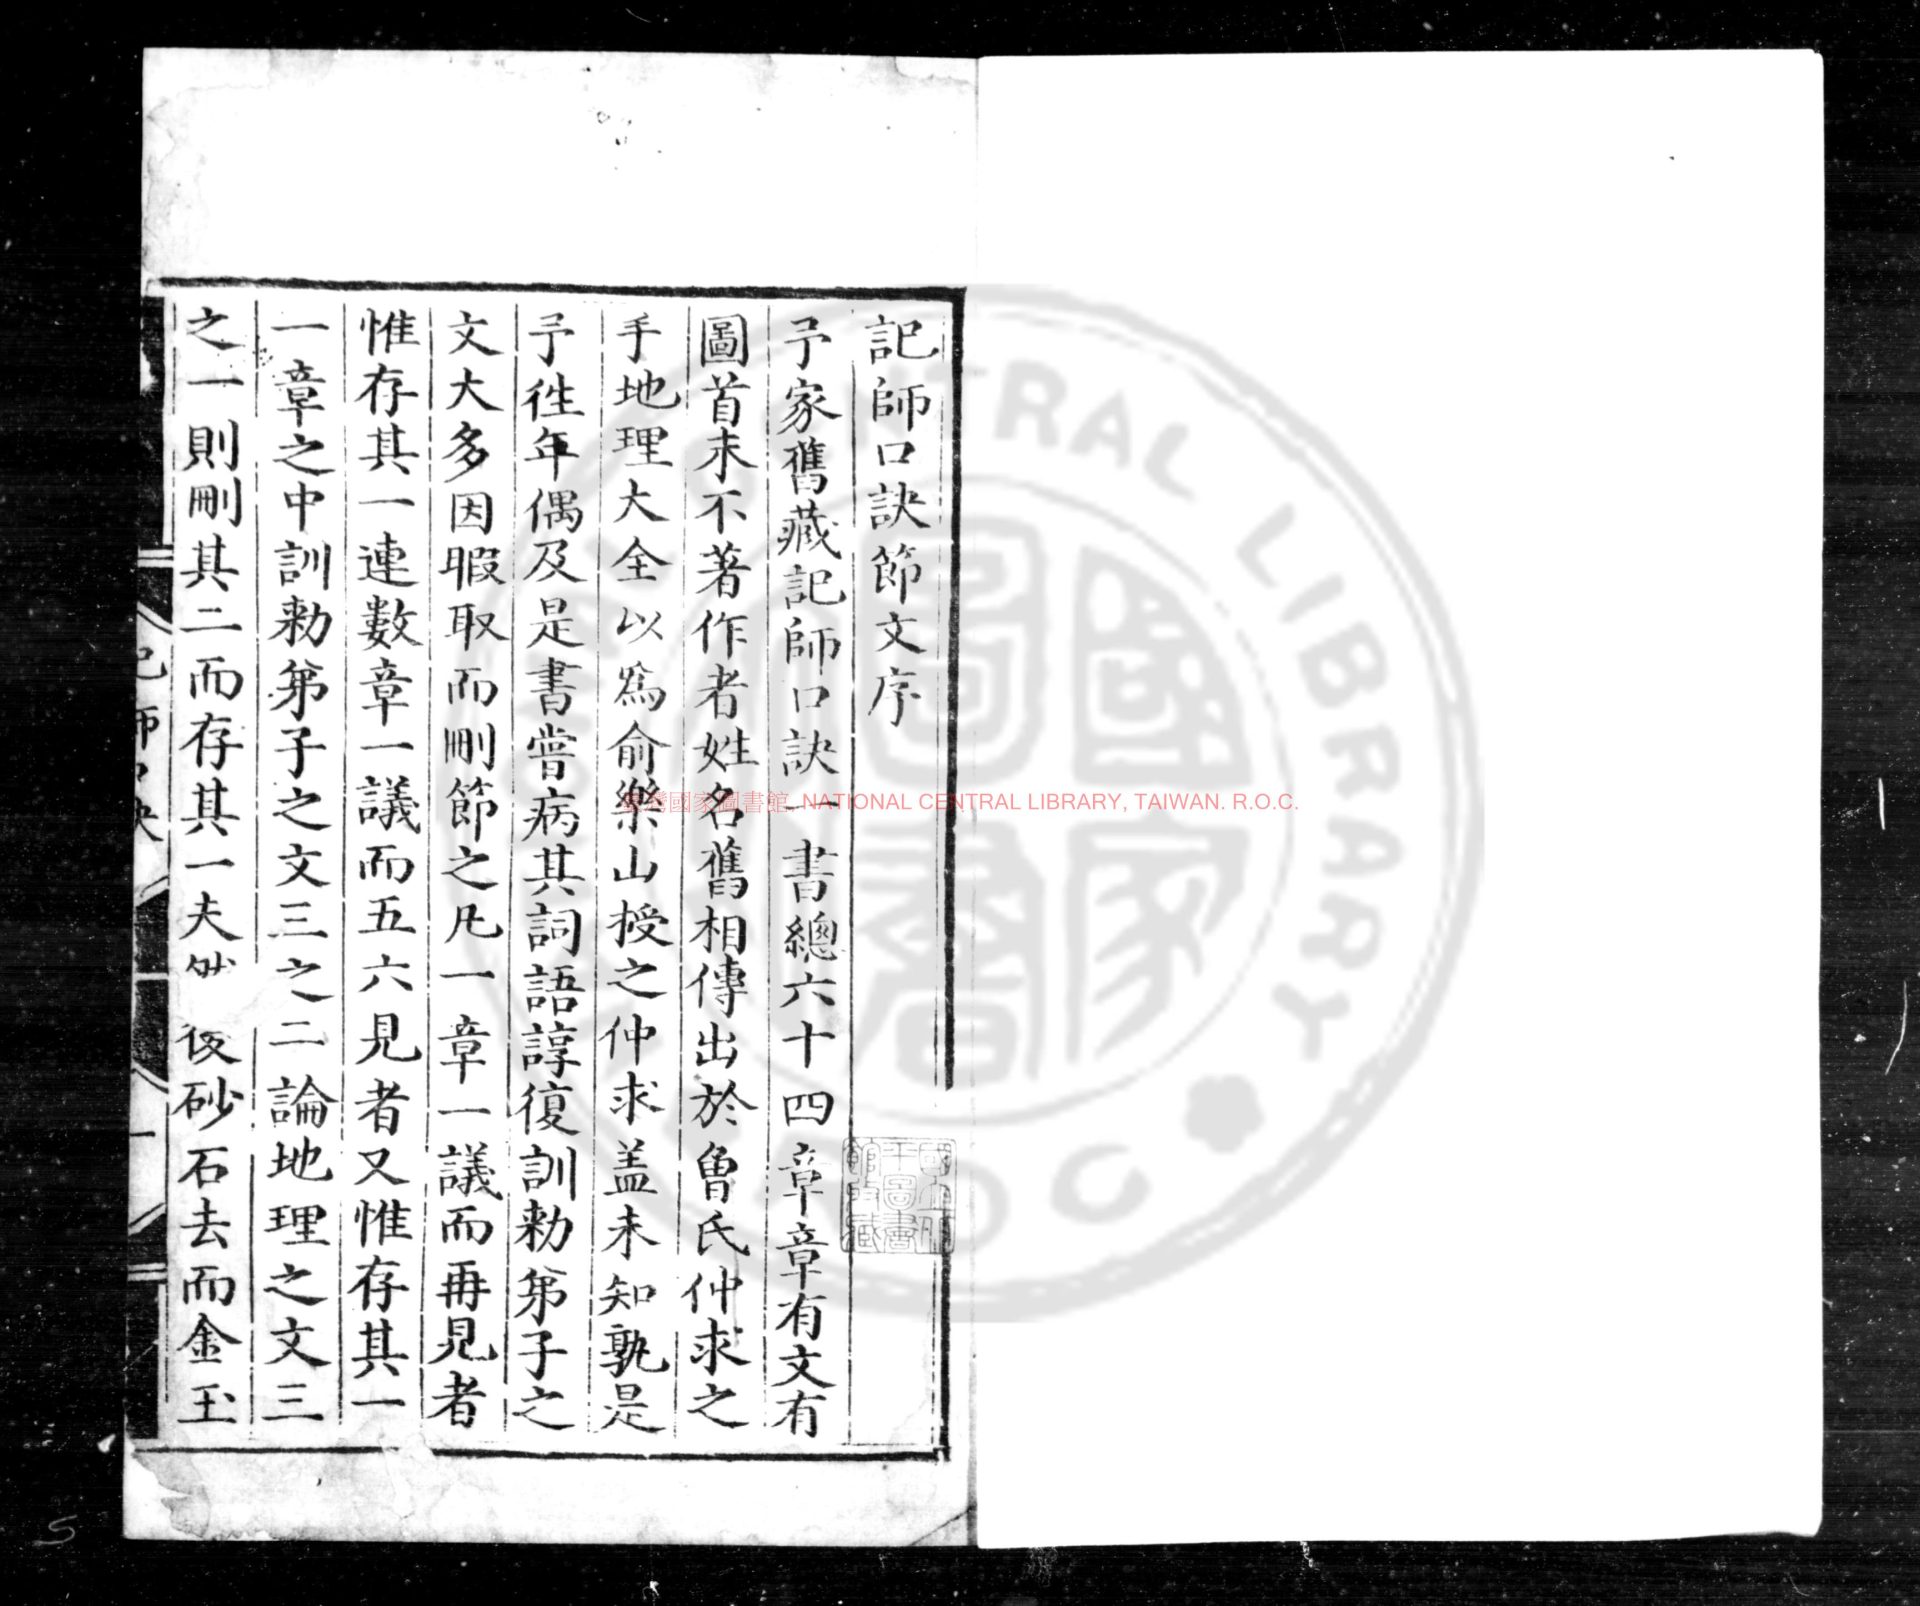 記師口訣節文序
予家舊藏記師口訣一書總六十四章章有文有
圖首末不著作者姓名舊相傳出於魯氏仲求之
手地理大全以為俞樂山授之仲求盖未知孰是
予徃年偶及是書嘗病其詞語諄復訓勑苐子之
文大多因暇取而刪節之凡一章一議而再見者
惟存其一連數章一議而五六見者又惟存其一
一章之中訓勑苐子之文三之二論地理之文三
之一則刪其二而存其一夫然後砂石去而金玉
記師口訣
一
國立中
央圖書
館收藏
臺灣國家圖書館 NATIONAL CENTRAL LIBRARY, TAIWAN. R.O.C.
5